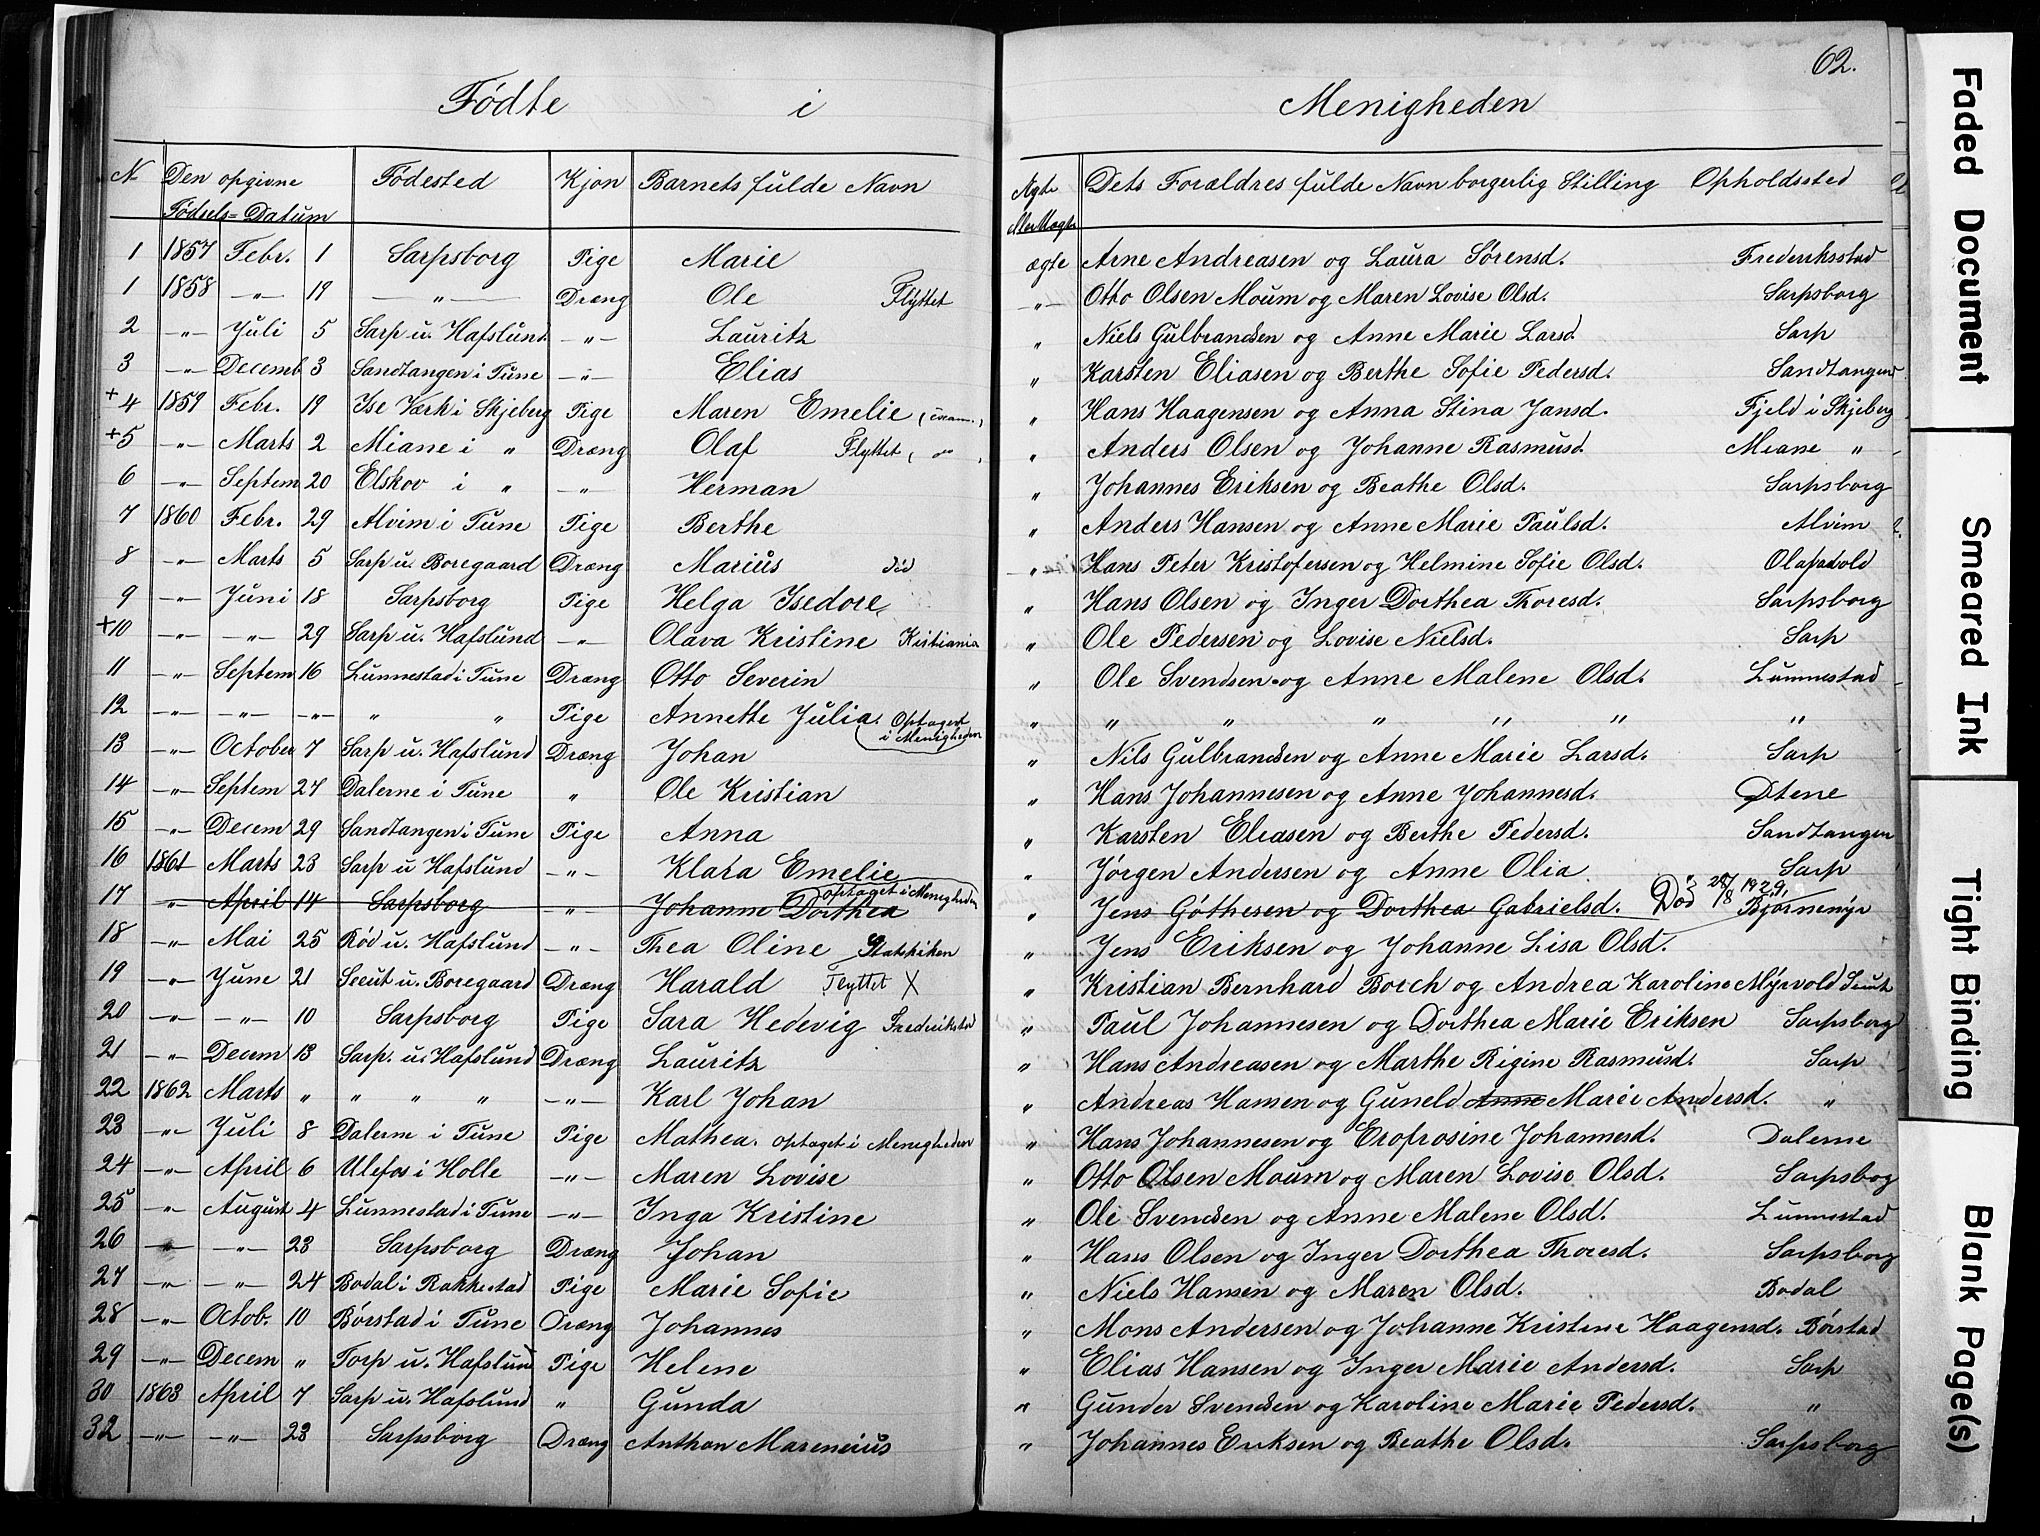 62.
Fødte i Menigheden
N Den opgivne Fødested Kjøn Barnets fulde Navn Ægte Dets Forældres fulde Navn borgerlig Stilling Opholdssted
Fødsels=Datum
1 1857 Febr. 1 Sarpsborg Pige Marie ægte Arne Andreasen og Laura Sørensd. Frederiksstad
1 1858 -"- 19 -"- Dræng Ole Flyttet -"- Otto Olsen Moum og Maren Lovise Olsd. Sarpsborg
2 -"- Juli 5 Sarp u. Hafslund -"- Lauritz " Niels Gulbrandsen og Anne Marie Larsd. Sarp
3 -"- Decemb 3 Sandtangen i Tune -"- Elias " Karsten Eliasen og Berthe Sofie Pedersd. Sandtangen
+4 1859 Febr. 19 Ise Værk i Skjeberg Pige Maren Emelie " Hans Haagensen og Anna Stina Jansd. Fjeld i Skjeberg
+5 -"- Marts 2 Miane i " Dræng Olaf Flyttet " Anders Olsen og Johanne Rasmusd. Miane "
6 -"- Septem 20 Elskov i " -"- Herman " Johannes Eriksen og Beathe Olsd. Sarpsborg
7 1860 Febr. 29 Alvim i Tune Pige Berthe " Anders Hansen og Anne Marie Paulsd. Alvim
8 -"- Marts 5 Sarp u. Boregaard Dræng Marius død " Hans Peter Kristofersen og Helmine Sofie Olsd. Olafsvold
9 -"- Juni 18 Sarpsborg Pige Helga Isedore " Hans Olsen og Inger Dorthea Thoresd. Sarpsborg
+10 -"- -"- 29 Sarp u. Hafslund -"- Olava Kristine Kistiania " Ole Pedersen og Lovise Nielsd. Sarp
11 -"- Septem 16 Lunnestad i Tune Dræng Otto Severin " Ole Svendsen og Anne Malene Olsd. Lunnestad
12 -"- -"- -"- " " Pige Annette Julia. Optaget i Menigheden " " " " " " "
13 -"- October 7 Sarp u. Hafslund Dræng Johan " Nils Gulbrandsen og Anne Marie Larsd. Sarp
14 -"- Septem 27 Dalerne i Tune " Ole Kristian " Hans Johannesen og Anne Johannesd. Otene
15 -"- Decem 29 Sandtangen i Tune Pige Anna " Karsten Eliasen og Berthe Pedersd. Sandtangen
16 1861 Marts 23 Sarp u Hafslund -"- Klara Emelie " Jørgen Andersen og Anne Olia. Sarp
17 " April 14 Sarpsborg -"- Johanne Dorthea optaget i Menigheden " Jens Gøthesen og Dorthea Gabrielsd. Død 27/8 1929. Bjørnemyr
18 -"- Mai 25 Rød u. Hafslund -"- Thea Oline Statskirken " Jens Eriksen og Johanne Lisa Olsd.
19 -"- June 21 Seeut u. Boregaard Dræng Harald Flyttet X " Kristian Bernhard Borch og Andrea Karoline Myrvold Seeut
20 -"- -"- 10 Sarpsborg Pige Sara Hedevig Frederikstad " Paul Johannesen og Dorthea Marie Eriksen Sarpsborg
21 -"- Decem 13 Sarp. u. Hafslund Dræng Lauritz " Hans Andreasen og Marthe Rigine Rasmusd. Sarp
22 1862 Marts " " " " -"- Karl Johan " Andreas Hansen og Guneld Anne Marie Andersd. "
23 -"- Juli 8 Dalerne i Tune Pige Mathea. optaget i Menigheden " Hans Johannesen og Erofrosine Johannesd. Dalerne
24 -"- April 6 Ulefos i Holle -"- Maren Lovise " Otto Olsen Moum og Maren Lovise Olsd. Sarpsborg
25 -"- August 4 Lunnestad i Tune -"- Inga Kristine " Ole Svendsen og Anne Malene Olsd. Lunnestad
26 -"- -"- 23 Sarpsborg Dræng Johan " Hans Olsen og Inger Dorthea Thoresd. Sarpsborg
27 -"- -"- 24 Bodal i Rakkestad Pige Marie Sofie " Niels Hansen og Maren Olsd. Bodal
28 -"- Octob. 10 Børstad i Tune Dræng Johannes " Mons Andersen og Johanne Kristine Haagensd. Børstad
29 -"- Decem " Torp u. Hafslund Pige Helene " Elias Hansen og Inger Marie Andersd. Sarp
30 1863 April 7 Sarp u. Hafslund " Gunda " Gunder Svendsen og Karoline Marie Pedersd. "
32 -"- -"- 23 Sarpsborg Dræng Anthon Marenius " Johannes Eriksen og Beathe Olsd. Sarpsborg
Faded Document
Smeared Ink
Tight Binding
Blank Page(s)